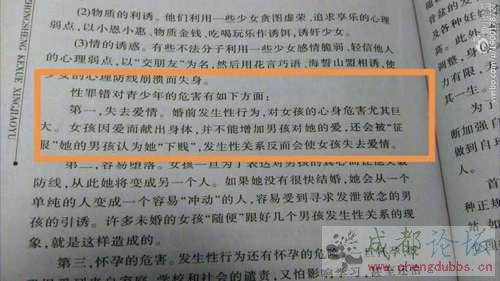 (2)物质的利诱。他们利用一些少女贪图虚荣，追求享乐的心理
弱点，以小恩小惠，物质金钱，吃喝玩乐作诱饵，诱奸少女。
(3)情的诱惑。有些不法分子利用一些少女感情脆弱，轻信他人
的心理弱点，以“交朋友”为名，然后用花言巧语，海誓山盟相诱，使
少女的心理防线崩溃而失身。
性罪错对青少年的危害有如下方面：
第一，失去爱情。婚前发生性行为，对女孩的心身危害尤其巨
大。女孩因爱而献出身体，并不能增加男孩对她的爱，还会被“征
服”她的男孩认为她“下贱”，发生性关系反而会使女孩失去爱情。
第二，容易堕落。女孩一旦为了表达对男孩的真心而让他突破
防线，从此她将变成另一个人。如果她没有很快结婚，她会从一个
单纯的人变成一个容易“冲动”的人，容易受到寻求发泄欲念的男孩
的引诱。许多未婚的女孩“随便”跟好几个男孩发生性关系的现
象，就是这样造成的。
第三，怀孕的危害。发生性行为还有怀孕的危险。一旦怀孕，
受到来自家庭、学校和社会的谴责，又怕影响学习，
ZHONGSHENG KEXUE XINGJIAOYU
成都论坛
www.chengdubbs.cn